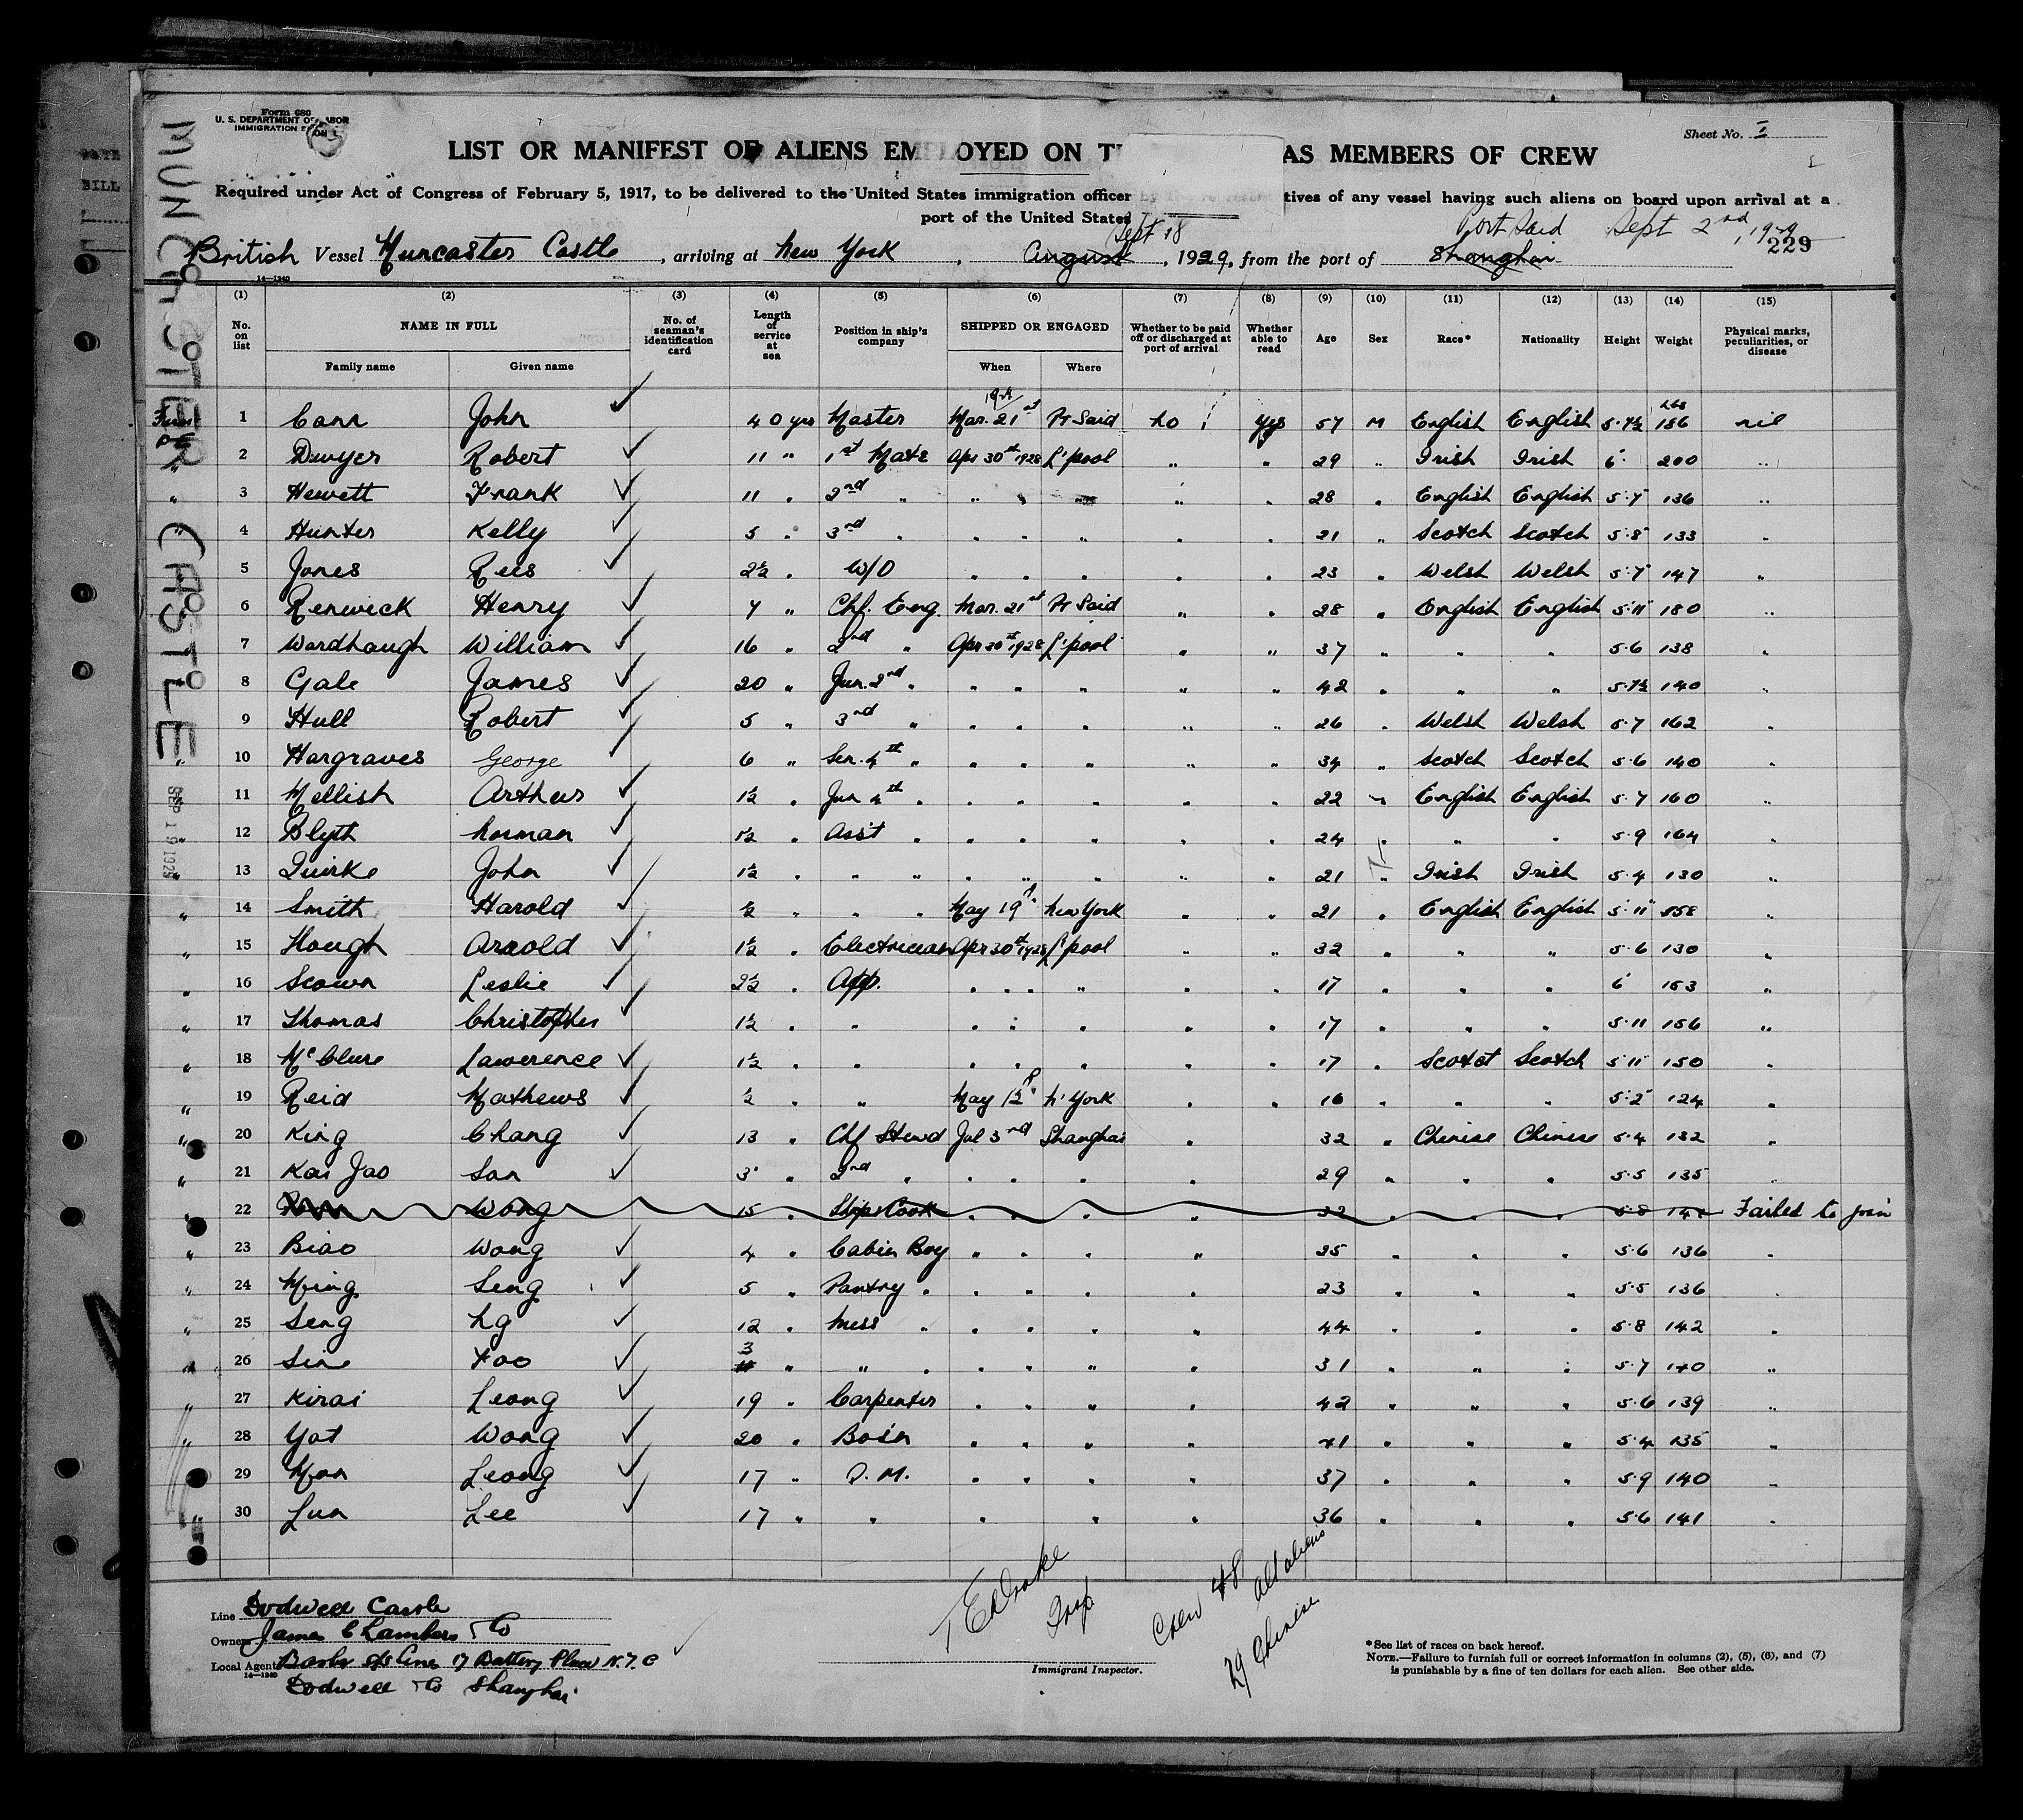 Form 680
U. S. DEPARTMENT OF LABOR
IMMIGRATION
Sheet No. I
LIST OR MANIFEST OF ALIENS EMPLOYED ON T AS MEMBERS OF CREW
Required under Act of Congress of February 5, 1917, to be delivered to the United States immigration officer tives of any vessel having such aliens on board upon arrival at a
port of the United States
Sept 18 Port Said Sept 2nd, 1929
British Vessel Muncaster Castle, arriving at New York, August, 1929, from the port of Shanghai 229
14—1240
MUNCASTER CASTLE
SEP 19 1929
(1) (2) (3) (4) (5) (6) (7) (8) (9) (10) (11) (12) (13) (14) (15)
No. on list NAME IN FULL No. of seaman's identification card Length of service at sea Position in ship's company SHIPPED OR ENGAGED Whether to be paid off or discharged at port of arrival Whether able to read Age Sex Race* Nationality Height Weight Physical marks, peculiarities, or disease
Family name Given name When Where
1 Cann John 40 yrs Master Mar. 21st 1929 Pt Said No Yes 57 M English English 5·7½ 186 lbs nil
2 Dwyer Robert 11 " 1st Mate Apr 30th 1928 L'pool " " 29 " Irish Irish 6' 200 "
3 Hewett Frank 11 " 2nd " " " " " 28 " English English 5·7 136 "
4 Hunter Kelly 5 " 3rd " " " " " 21 " Scotch Scotch 5·8 133 "
5 Jones Rees 2½ " W/O " " " " 23 " Welsh Welsh 5·7 147 "
6 Renwick Henry 7 " Chf. Eng. Mar. 21st Pt Said " " 28 " English English 5·11 180 "
7 Wardhaugh William 16 " 2nd " Apr 30th 1928 L'pool " " 37 " " " 5·6 138 "
8 Gale James 20 " Jun. 2nd " " " " " 42 " " " 5·7½ 140 "
9 Hull Robert 5 " 3rd " " " " " 26 " Welsh Welsh 5·7 162 "
10 Hargraves George 6 " Sen. 4th " " " " " 34 " Scotch Scotch 5·6 140 "
11 Mellish Arthur 1½ " Jun 4th " " " " " 22 " English English 5·7 160 "
12 Blyth Norman 1½ " Asst " " " " " 24 " " " 5·9 164 "
13 Quirke John 1½ " " " " " " " 21 " Irish Irish 5·4 130 "
14 Smith Harold ½ " " " May 19th New York " " 21 " English English 5·11 158 "
15 Hough Arnold 1½ " Electrician Apr 30th 1928 L'pool " " 32 " " " 5·6 130 "
16 Scown Leslie 2½ " App. " " " " 17 " " " 6' 153 "
17 Thomas Christopher 1½ " " " " " " 17 " " " 5·11 156 "
18 McClure Lawerence 1½ " " " " " " 17 " Scotct Scotch 5·11 150 "
19 Reid Mathews ½ " " May N' York " " 16 " " " 5·2 124 "
20 King Chang 13 " Chf Stewd Jul 3rd Shanghai " 32 " Chinese Chinese 5·4 132 "
21 Kai Jao San 3 " 2nd " " " " 29 " " " 5·5 135 "
22 Wong 15 " Ships Cook " " " 32 " " " 5·8 Failed to join
23 Biao Wong 4 " Cabin Boy " " " 25 " " " 5·6 136 "
24 Ming Seng 5 " Pantry " " " " 23 " " " 5·5 136 "
25 Seng Ng 12 " Mess " " " " 44 " " " 5·8 142 "
26 Sin Foo 3 " " " " " " 31 " " " 5·7 140 "
27 Kirai Leong 19 " Carpenter " " " 42 " " " 5·6 139 "
28 Yat Wong 20 " Bosn " " " 41 " " " 5·4 135 "
29 Man Leong 17 " Q.M. " " " 37 " " " 5·9 140 "
30 Lun Lee 17 " " " " " 36 " " " 5·6 141 "
Line Dodwell Castle
Owners James Chambers & Co
Local Agents Barber S/S Line 17 Battery Place N.Y.C
14—1240
Dodwell & Co Shanghai
Insp
Immigrant Inspector.
Crew 48
All aliens
29 Chinese
*See list of races on back hereof.
NOTE.—Failure to furnish full or correct information in columns (2), (5), (6), and (7)
is punishable by a fine of ten dollars for each alien. See other side.